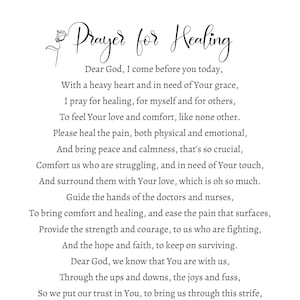 Prayer for Healing
Dear God, I come before you today,
With a heavy heart and in need of Your grace,
I pray for healing, for myself and for others,
To feel Your love and comfort, like none other.
Please heal the pain, both physical and emotional,
And bring peace and calmness, that's so crucial,
Comfort us who are struggling, and in need of Your touch,
And surround them with Your love, which is oh so much.
Guide the hands of the doctors and nurses,
To bring comfort and healing, and ease the pain that surfaces,
Provide the strength and courage, to us who are fighting,
And the hope and faith, to keep on surviving.
Dear God, we know that You are with us,
Through the ups and downs, the joys and fuss,
So we put our trust in You, to bring us through this strife,